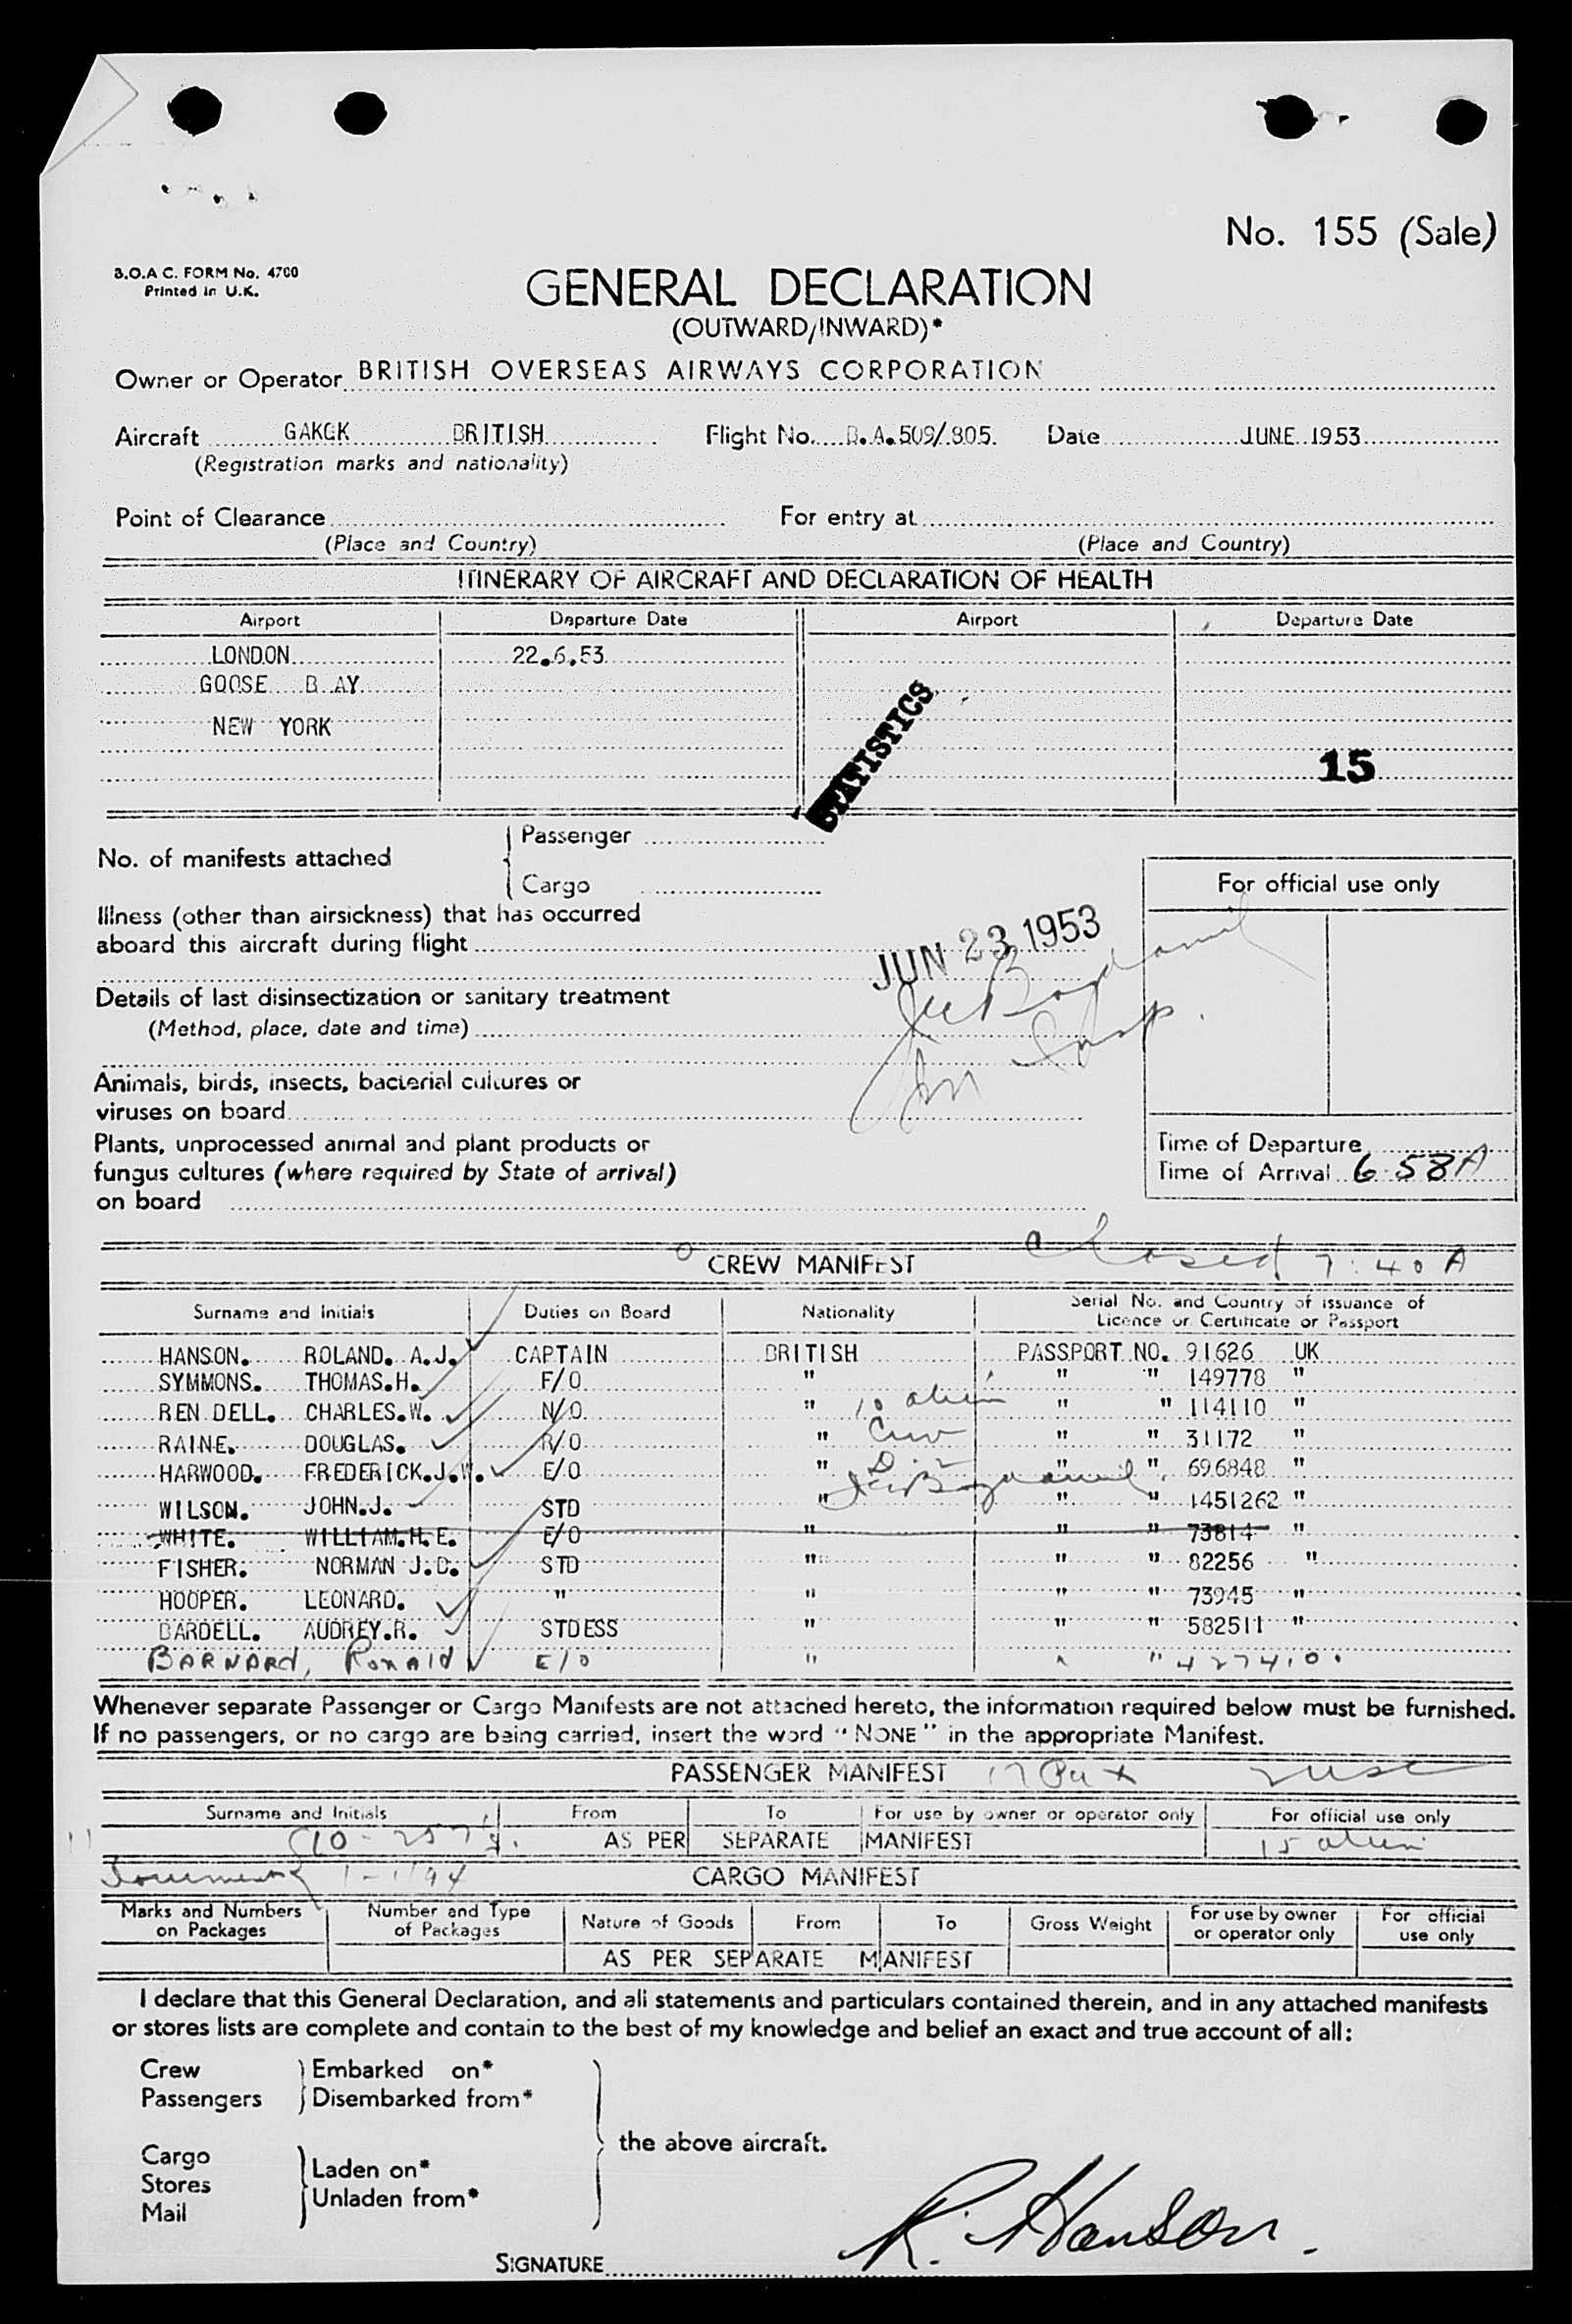 No. 155 (Sale)
B.O.A.C. FORM No. 4700
Printed in U.K.
GENERAL DECLARATION
(OUTWARD/INWARD)*
Owner or Operator BRITISH OVERSEAS AIRWAYS CORPORATION
Aircraft GAKGK BRITISH Flight No. B.A.509/805. Date JUNE 1953
(Registration marks and nationality)
Point of Clearance For entry at
(Place and Country) (Place and Country)
ITINERARY OF AIRCRAFT AND DECLARATION OF HEALTH
Airport Departure Date Airport Departure Date
LONDON 22.6.53
GOOSE B AY
NEW YORK
STATISTICS
15
No. of manifests attached
Passenger
Cargo
For official use only
Illness (other than airsickness) that has occurred
aboard this aircraft during flight
JUN 23 1953
Details of last disinsectization or sanitary treatment
(Method, place, date and time)
Animals, birds, insects, bacterial cultures or
viruses on board
Plants, unprocessed animal and plant products or
fungus cultures (where required by State of arrival)
on board
Time of Departure
Time of Arrival 6 58A
Closed 7:40 A
CREW MANIFEST
Surname and Initials Duties on Board Nationality Serial No. and Country of issuance of
Licence or Certificate or Passport
HANSON. ROLAND. A.J. CAPTAIN BRITISH PASSPORT NO. 91626 UK
SYMMONS. THOMAS.H. F/O " " " 149778 "
REN DELL. CHARLES.W. N/O " " " 114110 "
10 alien
RAINE. DOUGLAS. R/O " " " 31172 "
HARWOOD. FREDERICK.J.W. E/O " " " 696848 "
WILSON. JOHN.J. STD " " " 1451262 "
WHITE. WILLIAM.H.E. E/O " " " 73814 "
FISHER. NORMAN J.C. STD " " " 82256 "
HOOPER. LEONARD. " " " " 73945 "
BARDELL. AUDREY.R. STDESS " " " 582511 "
BARNARD, Ronald E/O " " " 427410
Whenever separate Passenger or Cargo Manifests are not attached hereto, the information required below must be furnished.
If no passengers, or no cargo are being carried, insert the word "NONE" in the appropriate Manifest.
PASSENGER MANIFEST 17 Pax
Surname and Initials From To For use by owner or operator only For official use only
AS PER SEPARATE MANIFEST 15 alien
CARGO MANIFEST
Marks and Numbers on Packages Number and Type of Packages Nature of Goods From To Gross Weight For use by owner or operator only For official use only
AS PER SEPARATE MANIFEST
I declare that this General Declaration, and all statements and particulars contained therein, and in any attached manifests
or stores lists are complete and contain to the best of my knowledge and belief an exact and true account of all:
Crew Embarked on*
Passengers Disembarked from*
the above aircraft.
Cargo
Stores Laden on*
Mail Unladen from*
SIGNATURE R. Hanson.